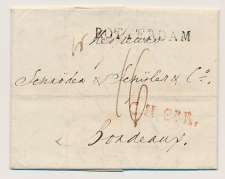 ROTTERDAM
Messieurs
Schröder & Schÿler & Co.
16
Bordeaux.